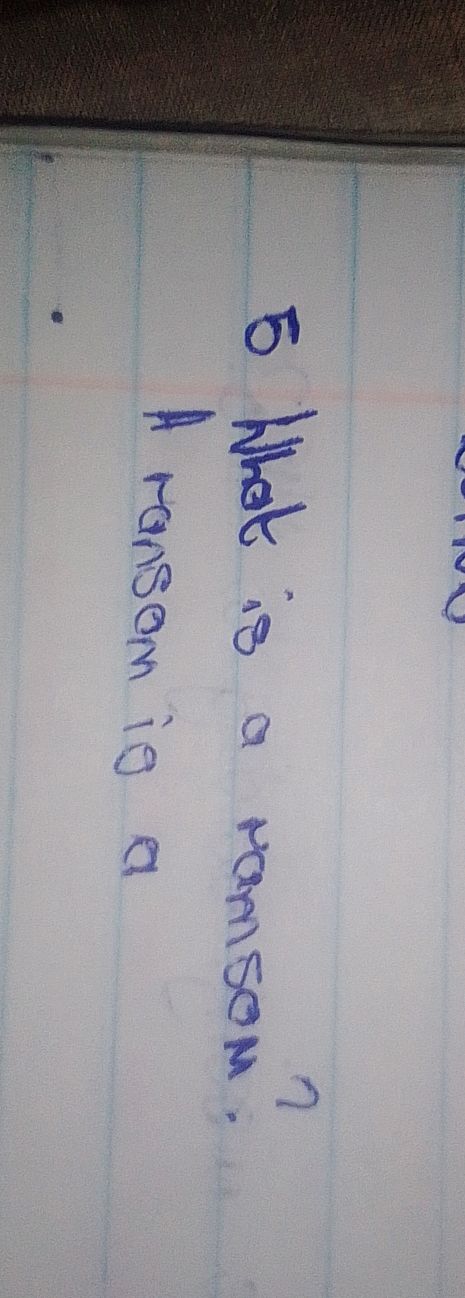 5 What is a ramsom?
A ransom is a